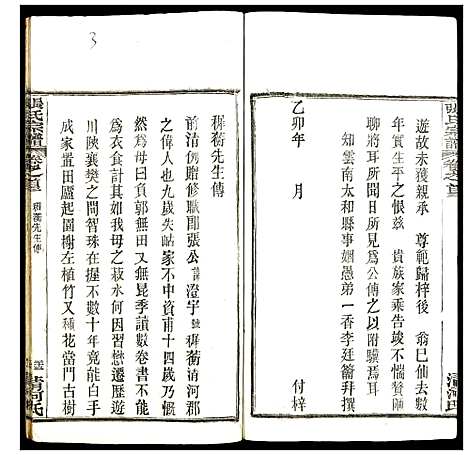 張氏宗譜
遊故未獲親承　尊範歸梓後　翁巳仙去數
年實生平之恨茲　貴族家乘告竣不惴贊陋
聊將耳所聞目所見爲公傳之以附驥焉耳
知雲南太和縣事姻愚弟一香李廷簫拜撰
乙卯年　月　付梓
清河氏
3
穉蘅先生傳
前清例贈修職郎張公諱澄宇號穉蘅清河郡
之偉人也九歲失怙家不中資甫十四歲乃慨
然爲母曰負郭無田又無昆季讀數卷書不能
爲衣食計其如我母之菽水何因習懋遷歷遊
川陝襄樊之間智珠在握不數十年竟能白手
成家置田廬起園榭左植竹又種花當門古樹
張氏宗譜
清河氏